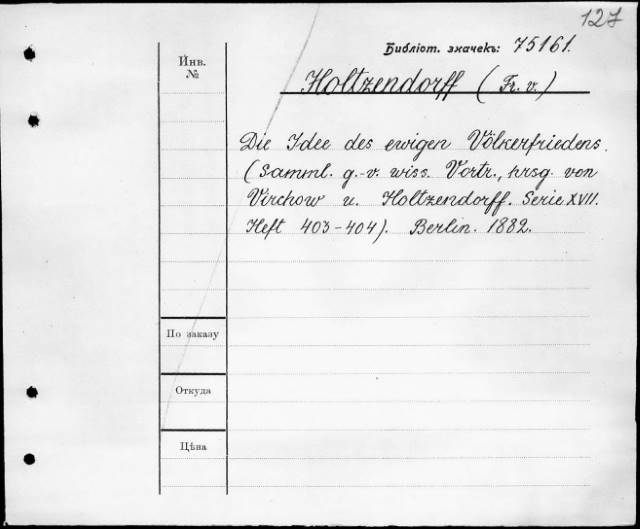 127
Библіот. значекъ: 75161.
Инв.
№
Holtzendorff (Fr. v.)
Die Idee des ewigen Völkerfriedens.
(Samml. g.-v. wiss. Vortr., hrsg. von
Virchow u. Holtzendorff. Serie XVII.
Heft 403-404). Berlin. 1882.
По заказу
Откуда
Цѣна